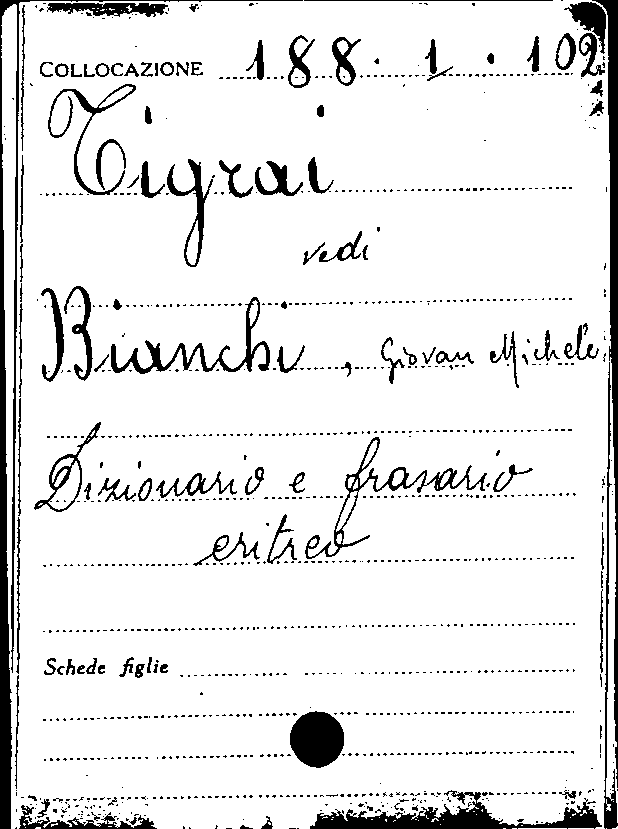 COLLOCAZIONE 188. 1. 102
Tigrai
vedi
Bianchi, Giovan Michele,
Dizionario e frasario
eritreo
Schede figlie